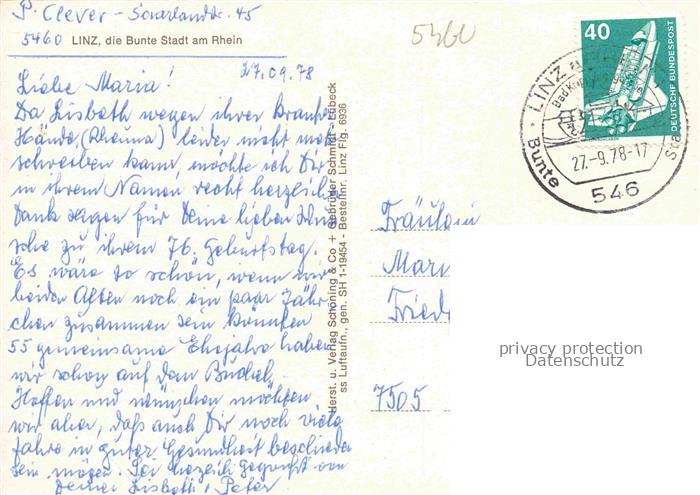 P. Clever - Saarlandstr. 45
5460 LINZ, die Bunte Stadt am Rhein
5460
27.09.78
Liebe Maria!
Da Lisbeth wegen ihrer Krank
Hände, (Rheuma) leider nicht mehr
schreiben kann, möchte ich Dir
in ihrem Namen recht herzlich
Dank sagen für Deine lieben Wün
sche zu ihrem 76. Geburtstag.
Es wäre so schön, wenn wir
beiden Alten noch ein paar Jähr
chen zusammen sein könnten
55 gemeinsame Ehejahre haben
wir schon auf dem Buckel.
Hoffen und wünschen möchten
wir aber, daß auch Dir noch viele
Jahre in guter Gesundheit beschieden
sein mögen. Sei herzlich gegrüßt von
Deiner Lisbeth, Peter
Herst. u. Verlag Schöning & Co + Gebrüder Schmidt - Lübeck
ss Luftaufn., gen. SH 1-19454 - Bestellnr. Linz Flg. 6936
40
DEUTSCHE BUNDESPOST
LINZ
27.-9.78-17
Bunte
546
Fräulein
Mari
Fried
7505
privacy protection
Datenschutz